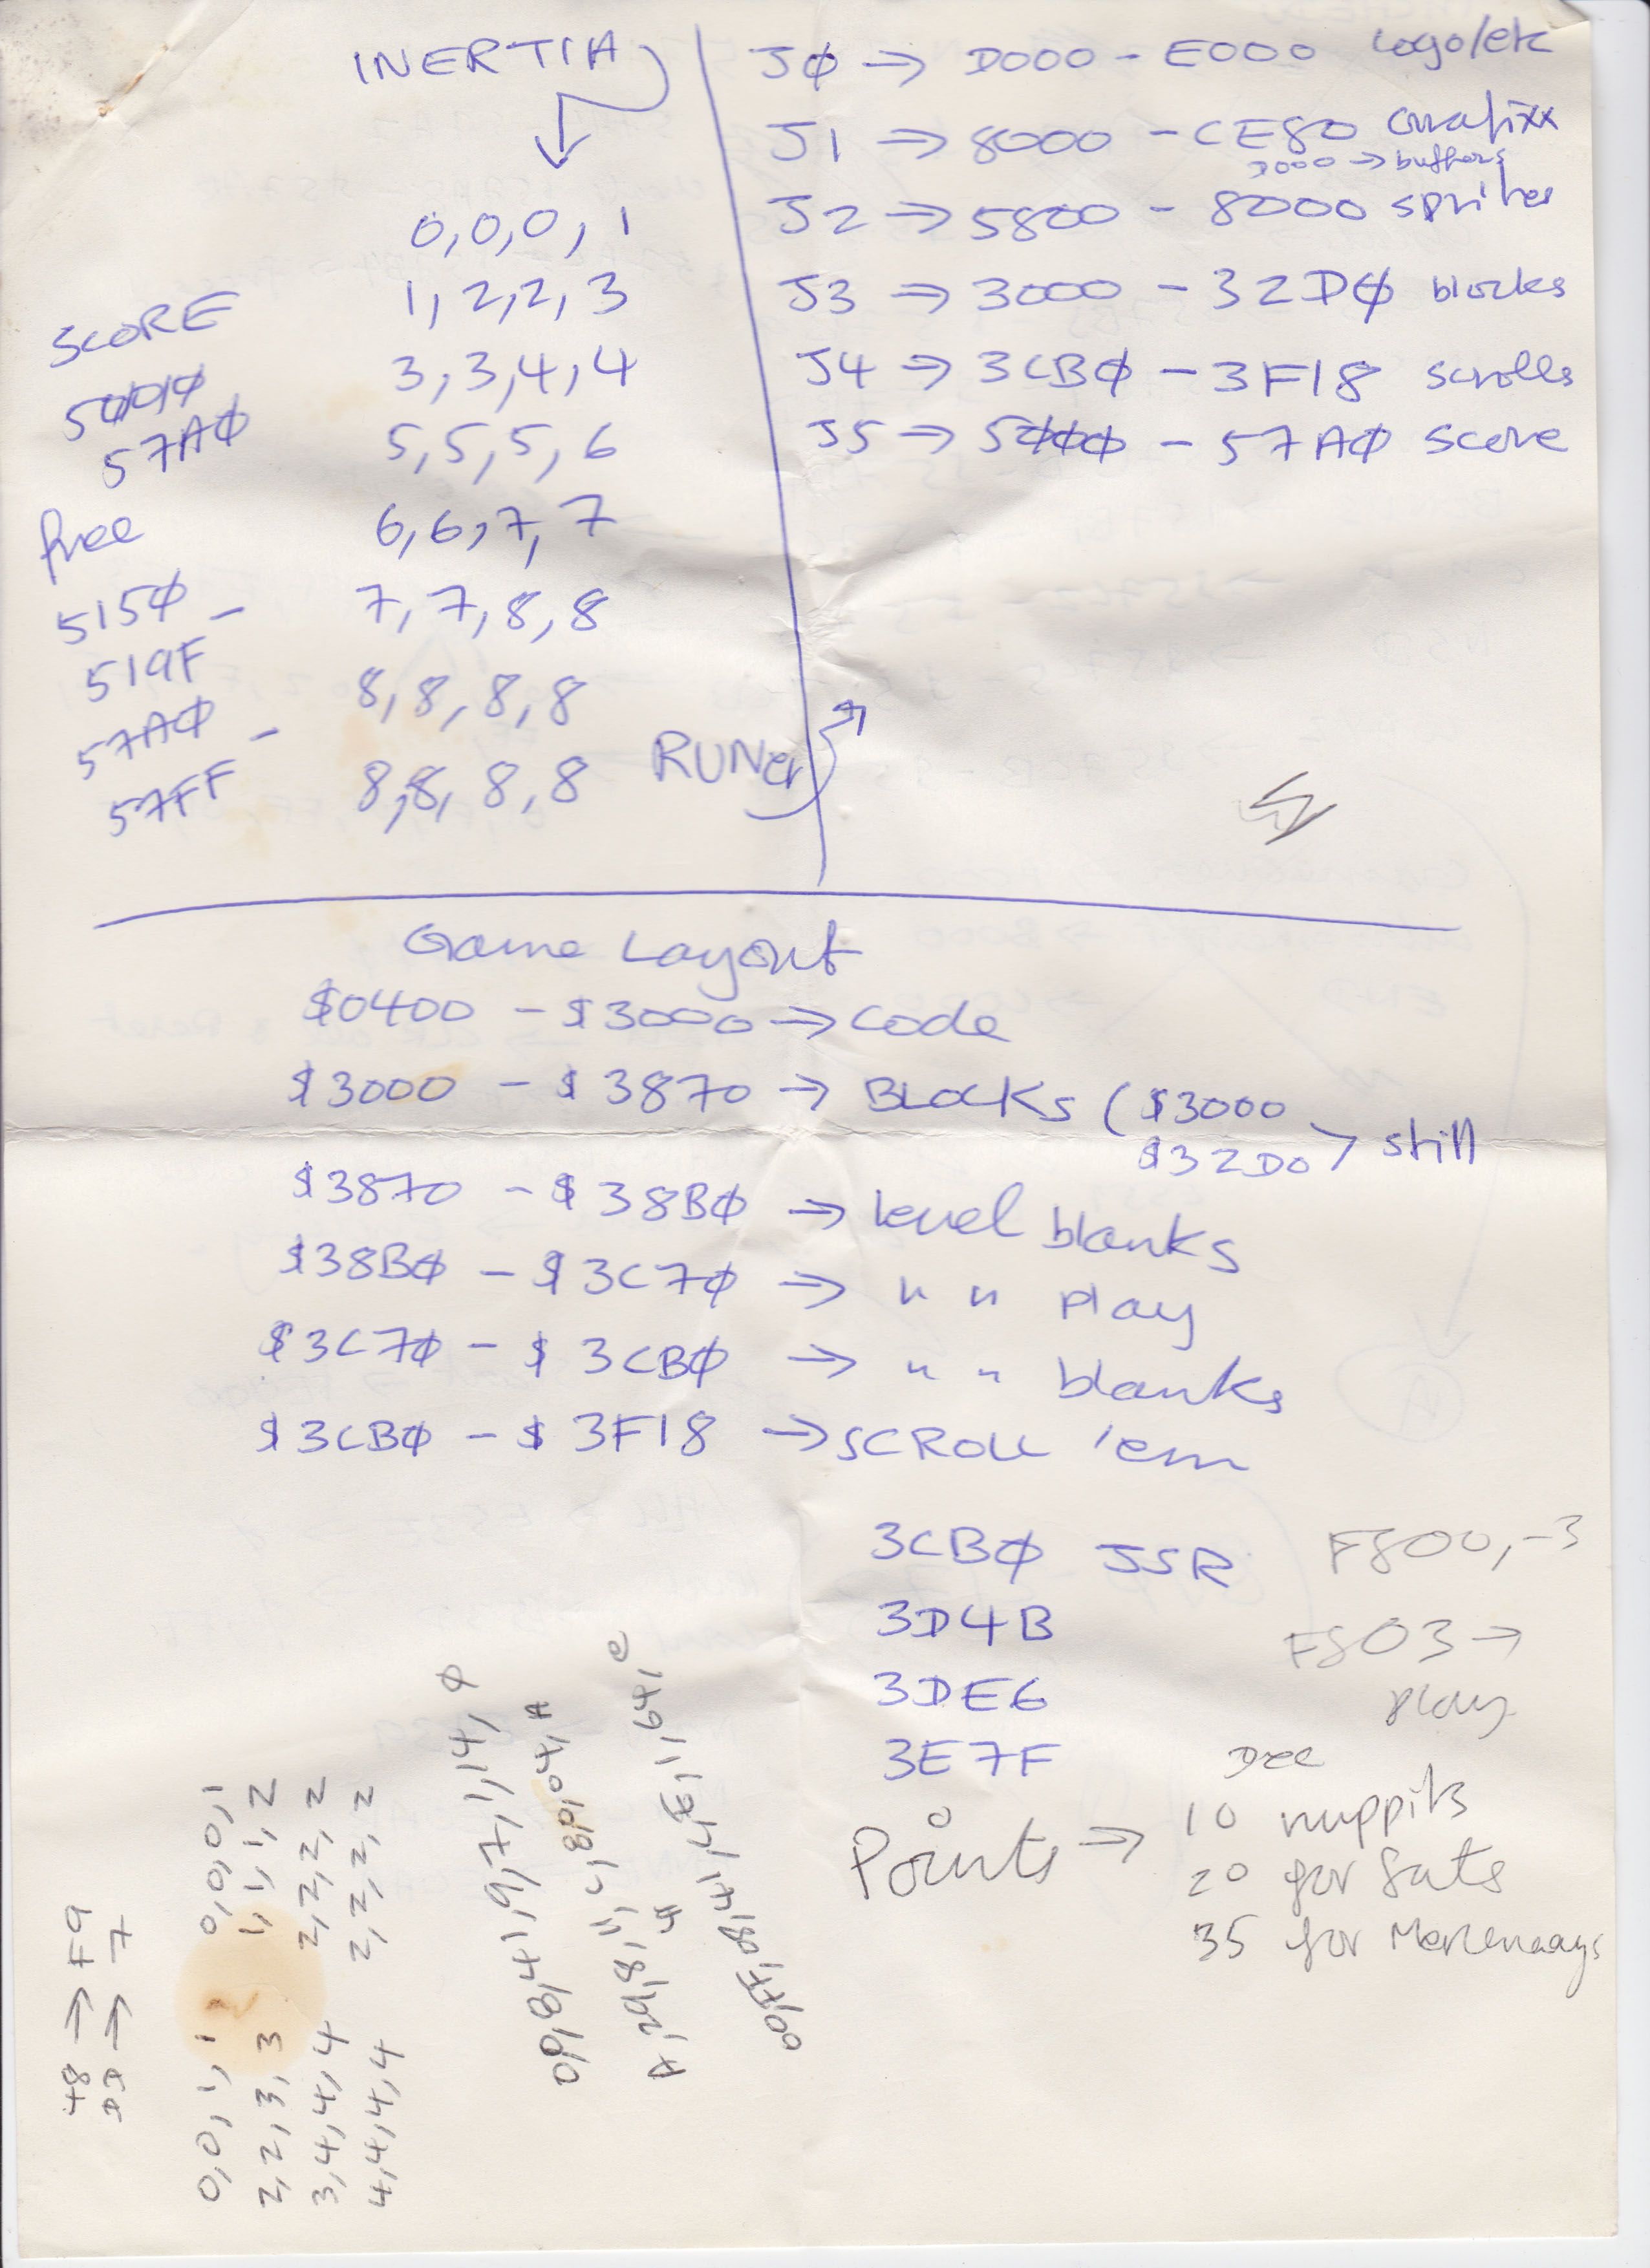 INERTIA
0,0,0,1
1,2,2,3
3,3,4,4
5,5,5,6
6,6,7,7
7,7,8,8
8,8,8,8
8,8,8,8
RUNer
SCORE
5000
57A0
free
5150 -
519F
57A0 -
57FF
J0 → D000 - E000 Logo/etc
J1 → 8000 - CE80
→ buffers
J2 → 5800 - 8000 sprites
J3 → 3000 - 32D0 blocks
J4 → 3CB0 - 3F18 scrolls
J5 → 5000 - 57A0 score
Game Layout
$0400 - $3000 → Code
$3000 - $3870 → BLOCKS ($3000
$32D0 > still
$3870 - $38B0 → level blanks
$38B0 - $3C70 → " " play
$3C70 - $3CB0 → " " blanks
$3CB0 - $3F18 → SCROLL 'em
3CB0 JSR
3D4B
3DE6
3E7F
F800,-3
F803 →
play
Dec
Points → 10 nuppits
20 for Sats
35 for
48 → F9
DD → 7
0,0,1,1 0,0,0,1
2,2,3,3 1,1,1,2
3,4,4,4 2,2,2,2
4,4,4,4 2,2,2,2